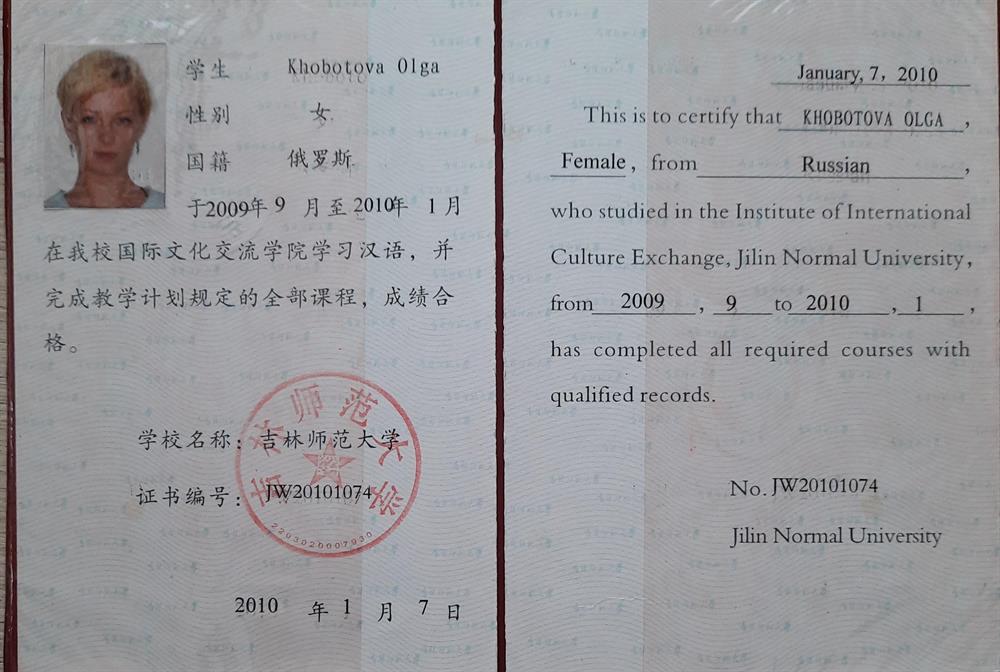 学生 Khobotova Olga
性别 女
国籍 俄罗斯
于2009年 9 月至2010年 1月
在我校国际文化交流学院学习汉语，并
完成教学计划规定的全部课程，成绩合
格。
学校名称：吉林师范大学
证书编号：JW20101074
吉林师范大学
2203020007930
2010 年 1 月 7 日
January, 7, 2010
This is to certify that KHOBOTOVA OLGA ,
Female , from Russian ,
who studied in the Institute of International
Culture Exchange, Jilin Normal University,
from 2009 , 9 to 2010 , 1 ,
has completed all required courses with
qualified records.
No. JW20101074
Jilin Normal University